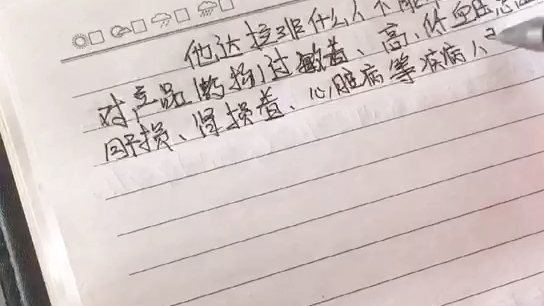 他达拉非什么人不能
对产品的物过敏者、高、低血压患
肝损、肾损者、心脏病等疾病人